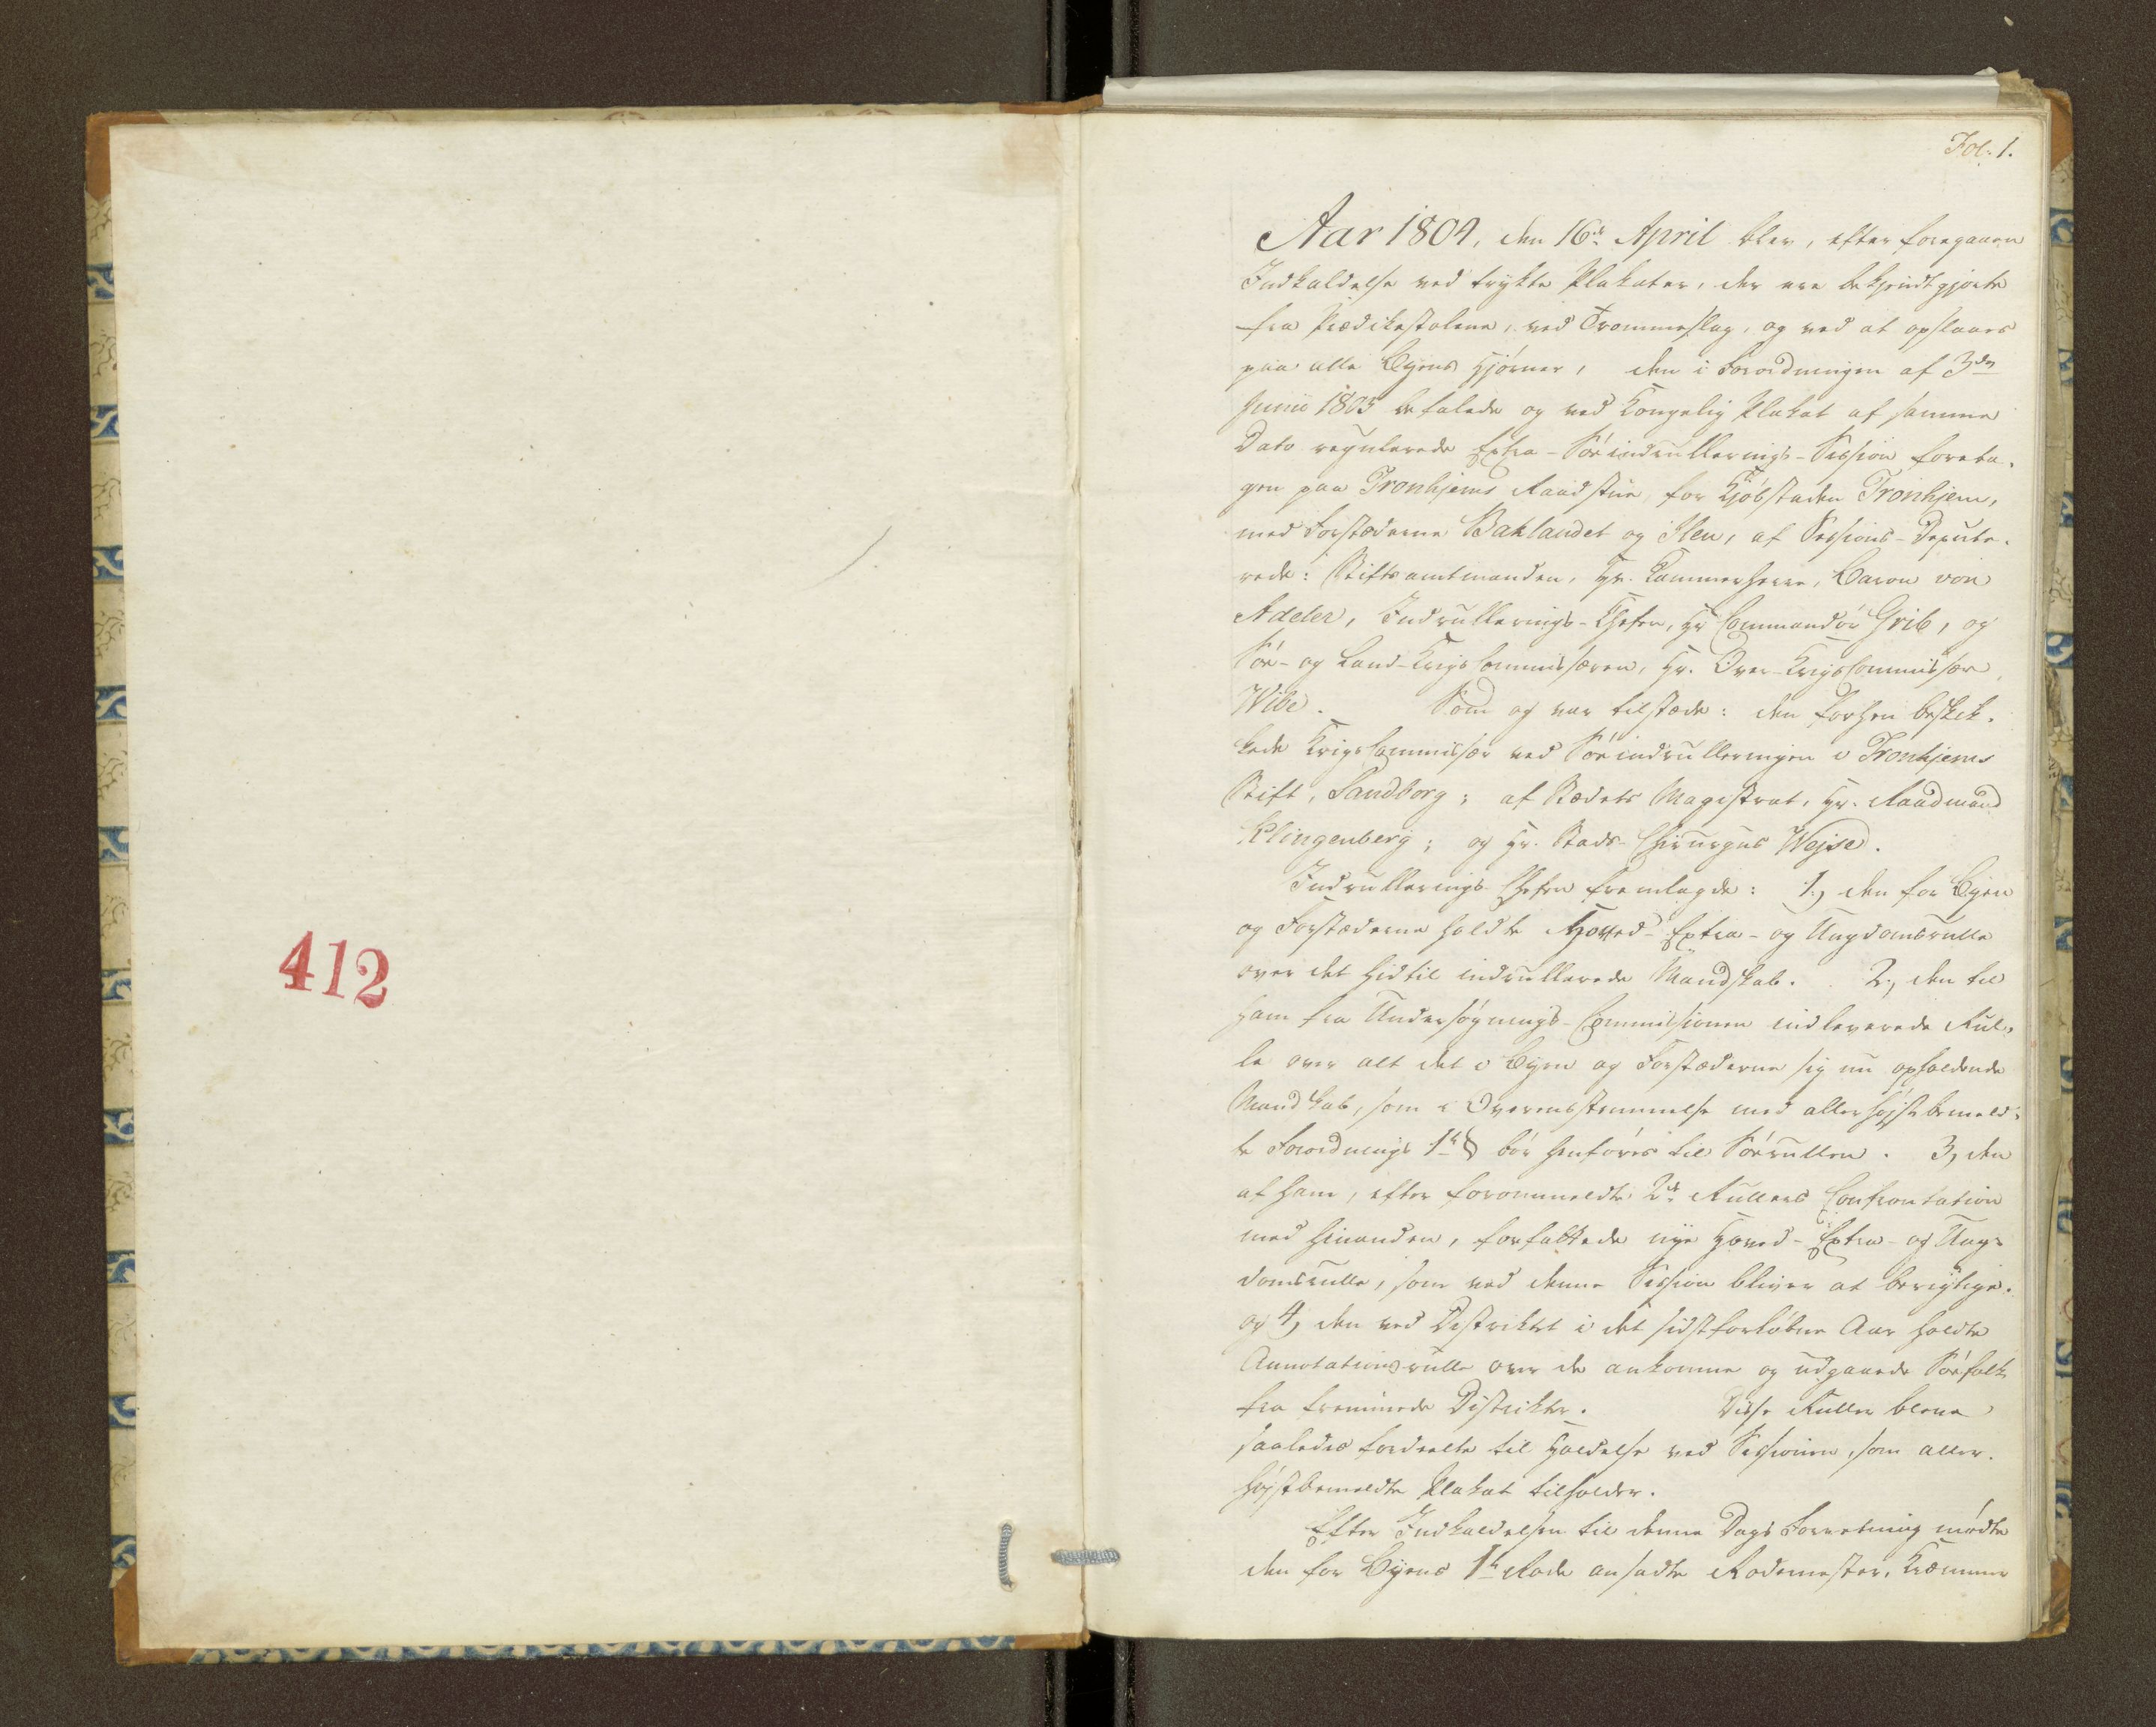 412
Fol: 1.
Aar 1804, den 16de April blev, efter foregaaen
Indkaldelse ved trykte Plakater, der ere bekjendtgjorte
fra Prædikestolene, ved Trommeslag, og ved at opslaaes
paa alle Byens Hjørner, den i Forordningen af 3die
Junii 1803 befalede og ved Kongelig Plakat af samme
Dato regulerede Extra-Söeindrullerings-Session foreta-
gen paa Tronhjems Raadstue for Kjöbstaden Tronhjem,
med Forstæderne Baklandet og Ilen, af Sessions-Depute-
rede: Stiftsamtmanden, Hr. Kammerherre, Baron von
Adeler, Indrullerings-Chefen, Hr Commandör Grib, og
Söe- og Land-KrigsCommissæren, Hr. Over-KrigsCommissær
Wibe. Som og var tilstæde: den forhen beskik-
kede KrigsCommissær ved Söeindrulleringen i Tronhjems
Stift, Sandborg; af Stædets Magistrat, Hr. Raadmand
Klingenberg; og Hr. Stads-Chirurgus Wejse.
Indrullerings-Chefen fremlagde: 1, den for Byen
og Forstæderne holdte Hoved- Extra- og Ungdomsrulle
over det hidtil indrullerede Mandskab. 2, den til
ham fra Undersøgnings-Commissionen indleverede Rul-
le over alt det i Byen og Forstæderne sig nu opholdende
Mandskab, som i Overensstemmelse med allerhøjstbemeld-
te Forordnings 1te § bör henföres til Söerullen. 3, den
af ham, efter forommeldte 2de Rullers Confrontation
med hinanden, forfattede nye Hoved- Extra- og Ung-
domsrulle, som ved denne Session bliver at berigtige.
og 4, den ved Distriktet i det sidstforløbne Aar holdte
Annotationsrulle over de ankomne og udgaaede Söefolk
fra fremmede Distrikter. Disse Ruller bleve
saaledes fordeelte til Holdelse ved Sessionen, som aller-
højstbemeldte Plakat tilholder.
Efter Indkaldelsen til denne Dags Forretning mødte
den for Byens 1te Rode ansadte Rodemester, Kræmmer